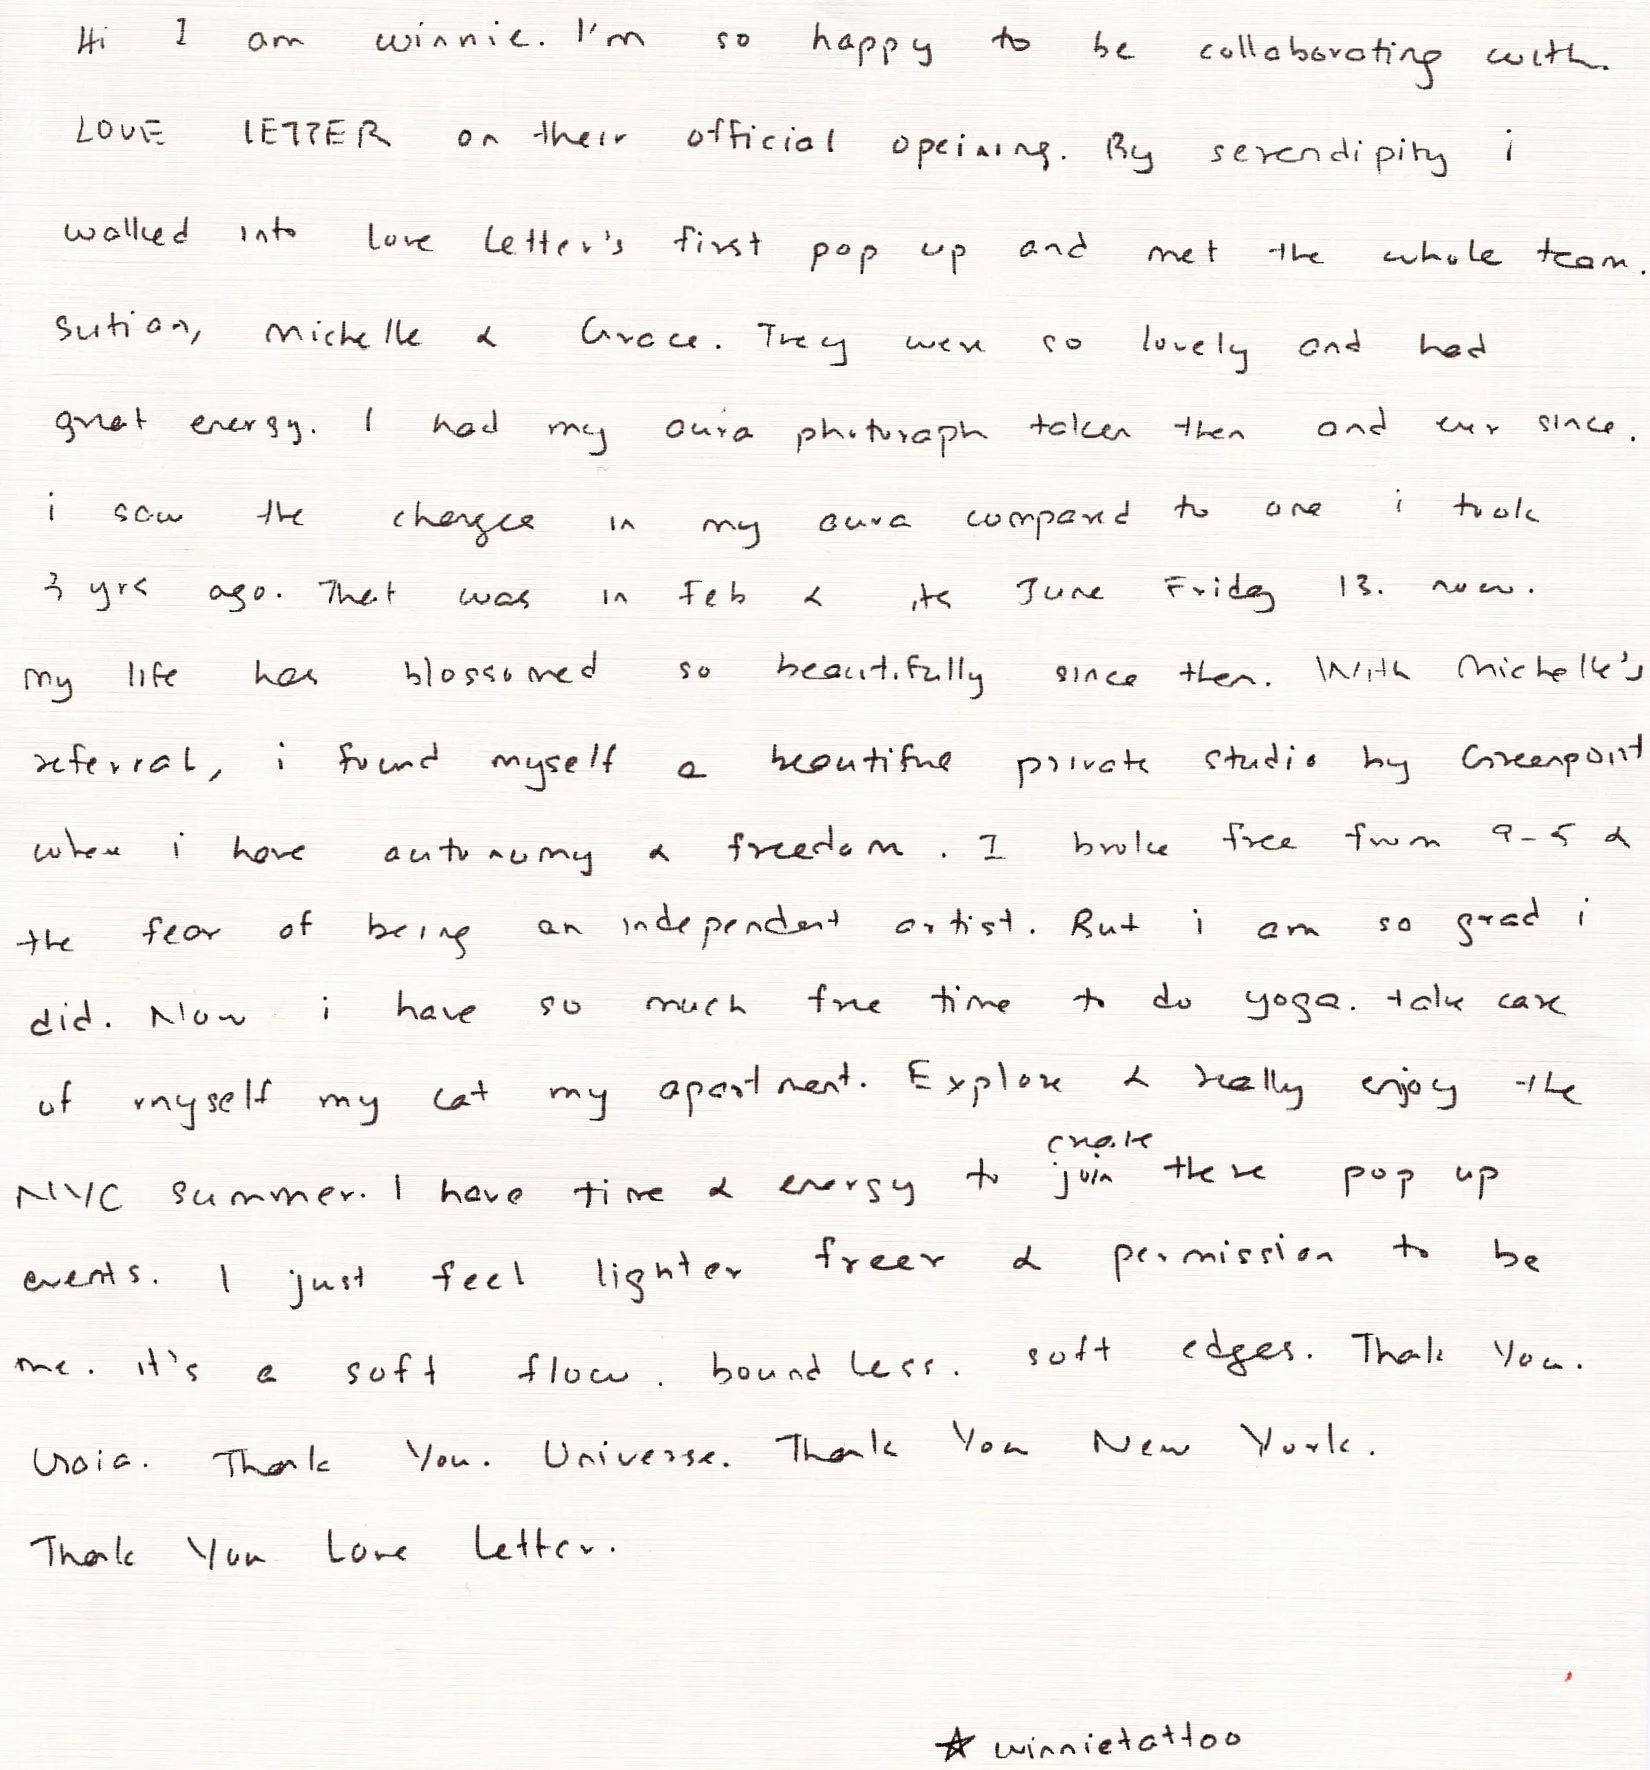 Hi I am winnie. I'm so happy to be collaborating with
LOVE LETTER on their official opeining. By serendipity i
walked into love letter's first pop up and met the whole team.
Michelle & Grace. They were so lovely and had
great energy. I had my aura photoraph taken then and ever since.
i saw the changes in my aura compared to one i took
3 yrs ago. That was in Feb & its June Friday 13. now.
my life has blossomed so beautifully since then. With Michelle's
referral, i found myself a beautiful private studio by Greenpoint
where i have autonomy & freedom. I broke free from 9-5 &
the fear of being an independent artist. But i am so grad i
did. Now i have so much free time to do yoga. take care
of myself my cat my apartment. Explore & really enjoy the
create
NYC summer. I have time & energy to join these pop up
events. I just feel lighter freer & permission to be
me. it's a soft flow. boundless. soft edges. Thank You.
Gaia. Thank You. Universe. Thank You New York.
Thank You Love Letter.
☆ winnietattoo